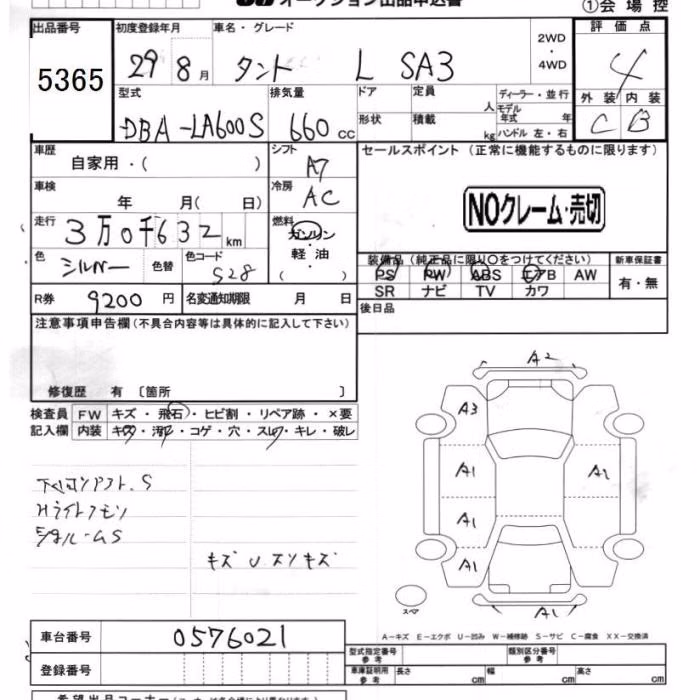 オークション出品申込書 ①会場控
出品番号 初度登録年月 車名・グレード 2WD・4WD 評価点
5365 29 8月 タント L SA3 4
型式 排気量 ドア 定員 人 ディーラー・並行 外装 内装
DBA-LA600S 660cc 形状 積載 kg モデル年式 年 ハンドル 左・右 C B
車歴 シフト セールスポイント (正常に機能するものに限ります)
自家用・( ) A7
車検 年 月( 日) 冷房 AC NOクレーム・売切
走行 3万0千632km 燃料 ガソリン・軽油・( )
色 シルバー 色替 色コード S28 装備品(純正品に限り○をつけてください) 新車保証書
PS PW ABS エアB AW 有・無
R券 9200円 名変通知期限 月 日 SR ナビ TV カワ
注意事項申告欄(不具合内容等は具体的に記入して下さい) 後日品
修復歴 有 〔箇所 〕
検査員 FW キズ・飛石・ヒビ割・リペア跡・×要
記入欄 内装 キズ・汚れ・コゲ・穴・スレ・キレ・破レ
A2
A3
A1 A2
A1
A1
A1
スペア
S
HライトクモリS
キズUスリキズ
A-キズ E-エクボ U-凹み W-補修跡 S-サビ C-腐食 XX-交換済
車台番号 0576021
型式指定番号 参考 類別区分番号 参考
登録番号 車庫証明用 参考 長さ cm 幅 cm 高さ cm
希望出品コーナー